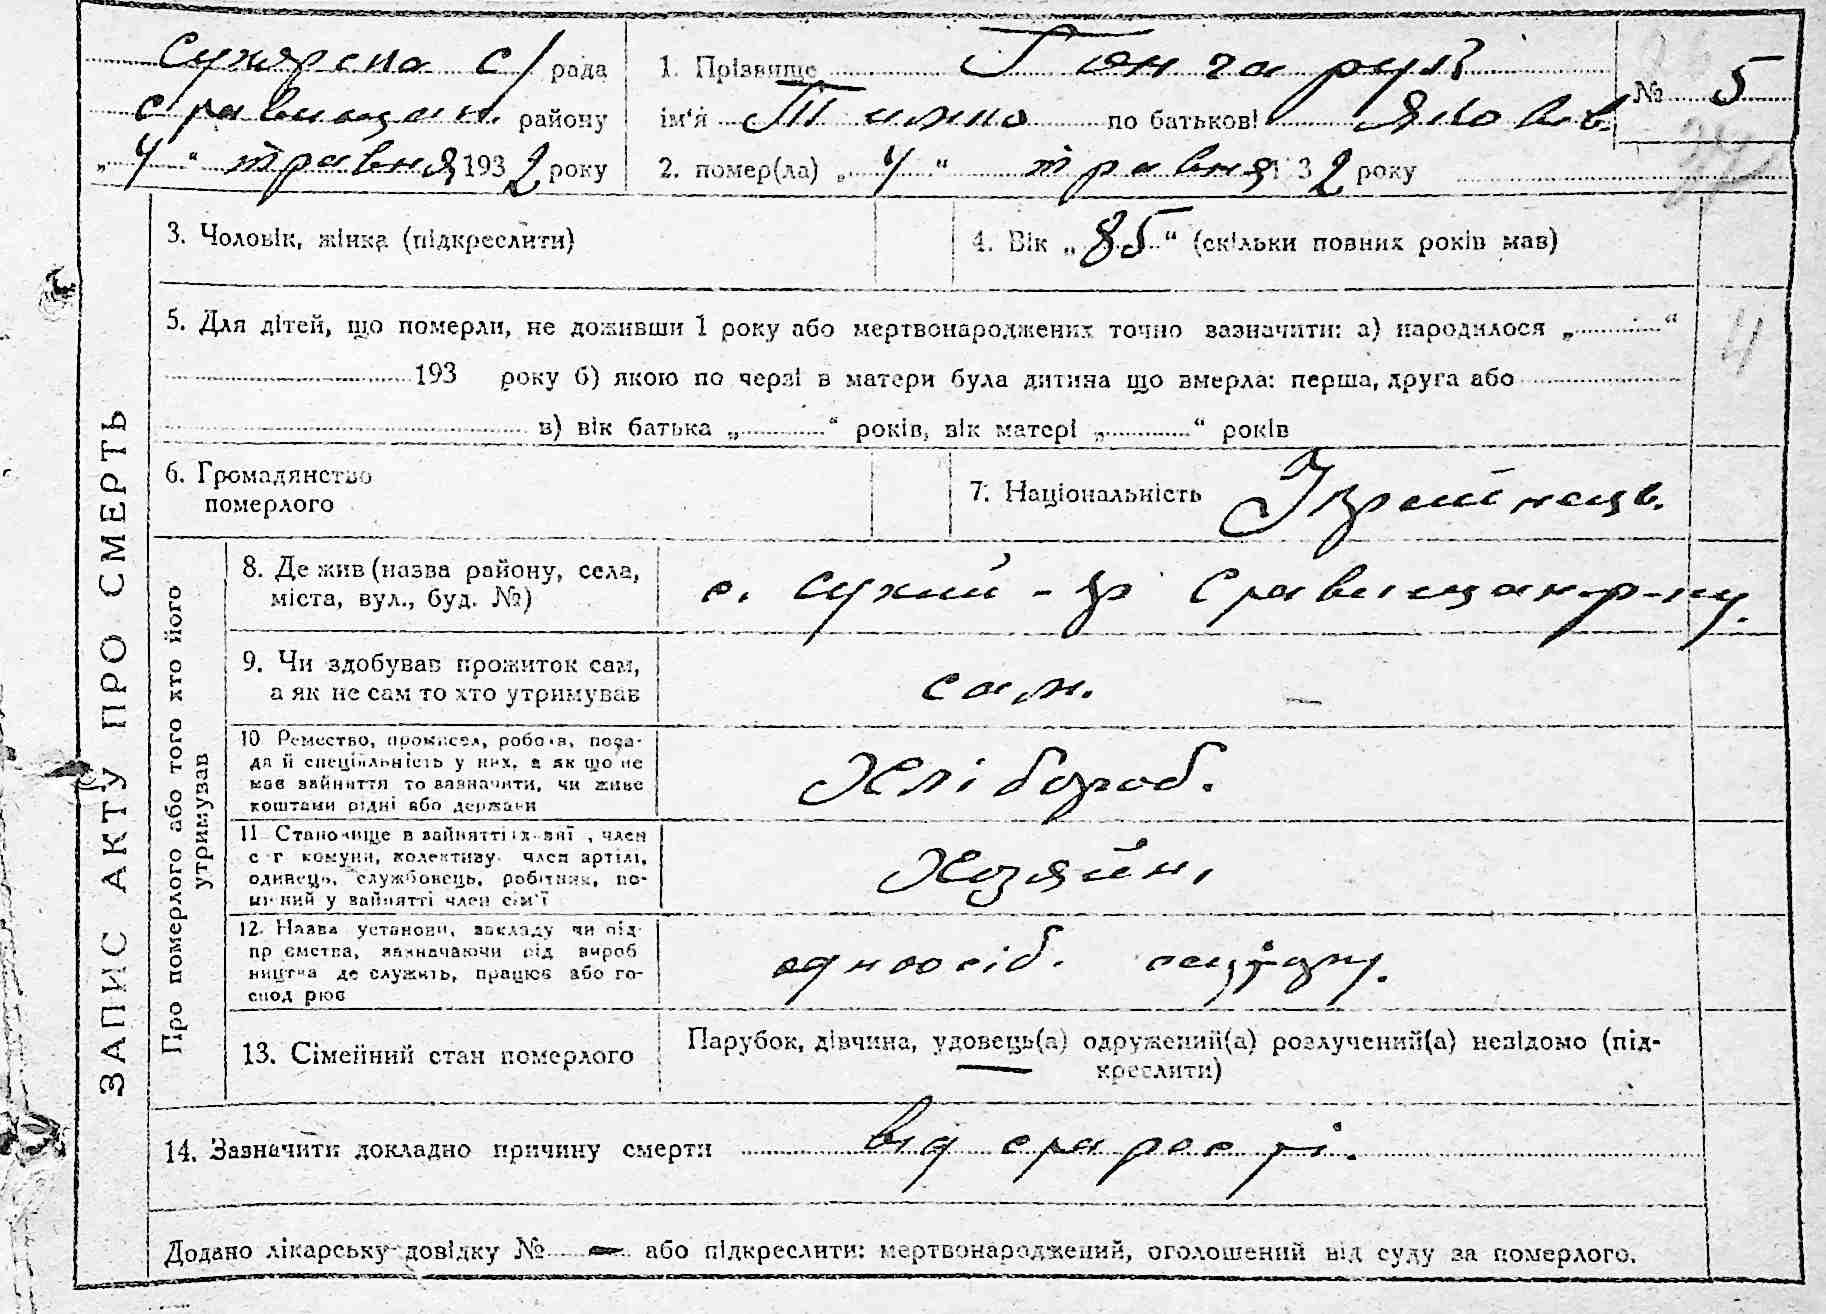 Сухоярська с/рада
Ставищан. району
„4“ травня 1932 року
1. Прізвище Гончарук
№ 5
ім'я Тимко по батькові Яков.
2. помер(ла) „4“ травня 1 3 2 року
3. Чоловік, жінка (підкреслити)
4. Вік „85“ (скільки повних років мав)
5. Для дітей, що померли, не доживши 1 року або мертвонароджених точно вазначити: а) народилося „ “
193 року б) якою по черзі в матери була дитина що вмерла: перша, друга або
в) вік батька „ “ років, вік матері „ “ років
4
6. Громадянство
померлого
7. Національність Українець.
ЗАПИС АКТУ ПРО СМЕРТЬ
Про померлого або того хто його
утримував
8. Де жив (назва району, села,
міста, вул., буд. №)
с. Сухий-яр Ставищан. р-ну.
9. Чи здобував прожиток сам,
а як не сам то хто утримував
сам.
10 Ремество, промисел, робота, поса-
да й спеціяльність у них, а як що не
має вайняття то вазначити, чи живе
коштами рідні або держави
Хлібороб.
11. Становище в вайнятті: , член
с-г комуни, колективу, член артілі,
одивець, службовець, робітник, по-
мічний у вайнятті член сім'ї
Хозяйн,
12. Назва установи, закладу чи під-
пр ємства, вазначаючи від вироб
ництва де служить, працює або го-
спод рює
одноосіб.
13. Сімейний стан померлого
Парубок, дівчина, удовець(а) одружений(а) розлучений(а) невідомо (під-
креслити)
14. Зазначити докладно причину смерти від старості.
Додано лікарську довідку № — або підкреслити: мертвонароджений, оголошений від суду за померлого.